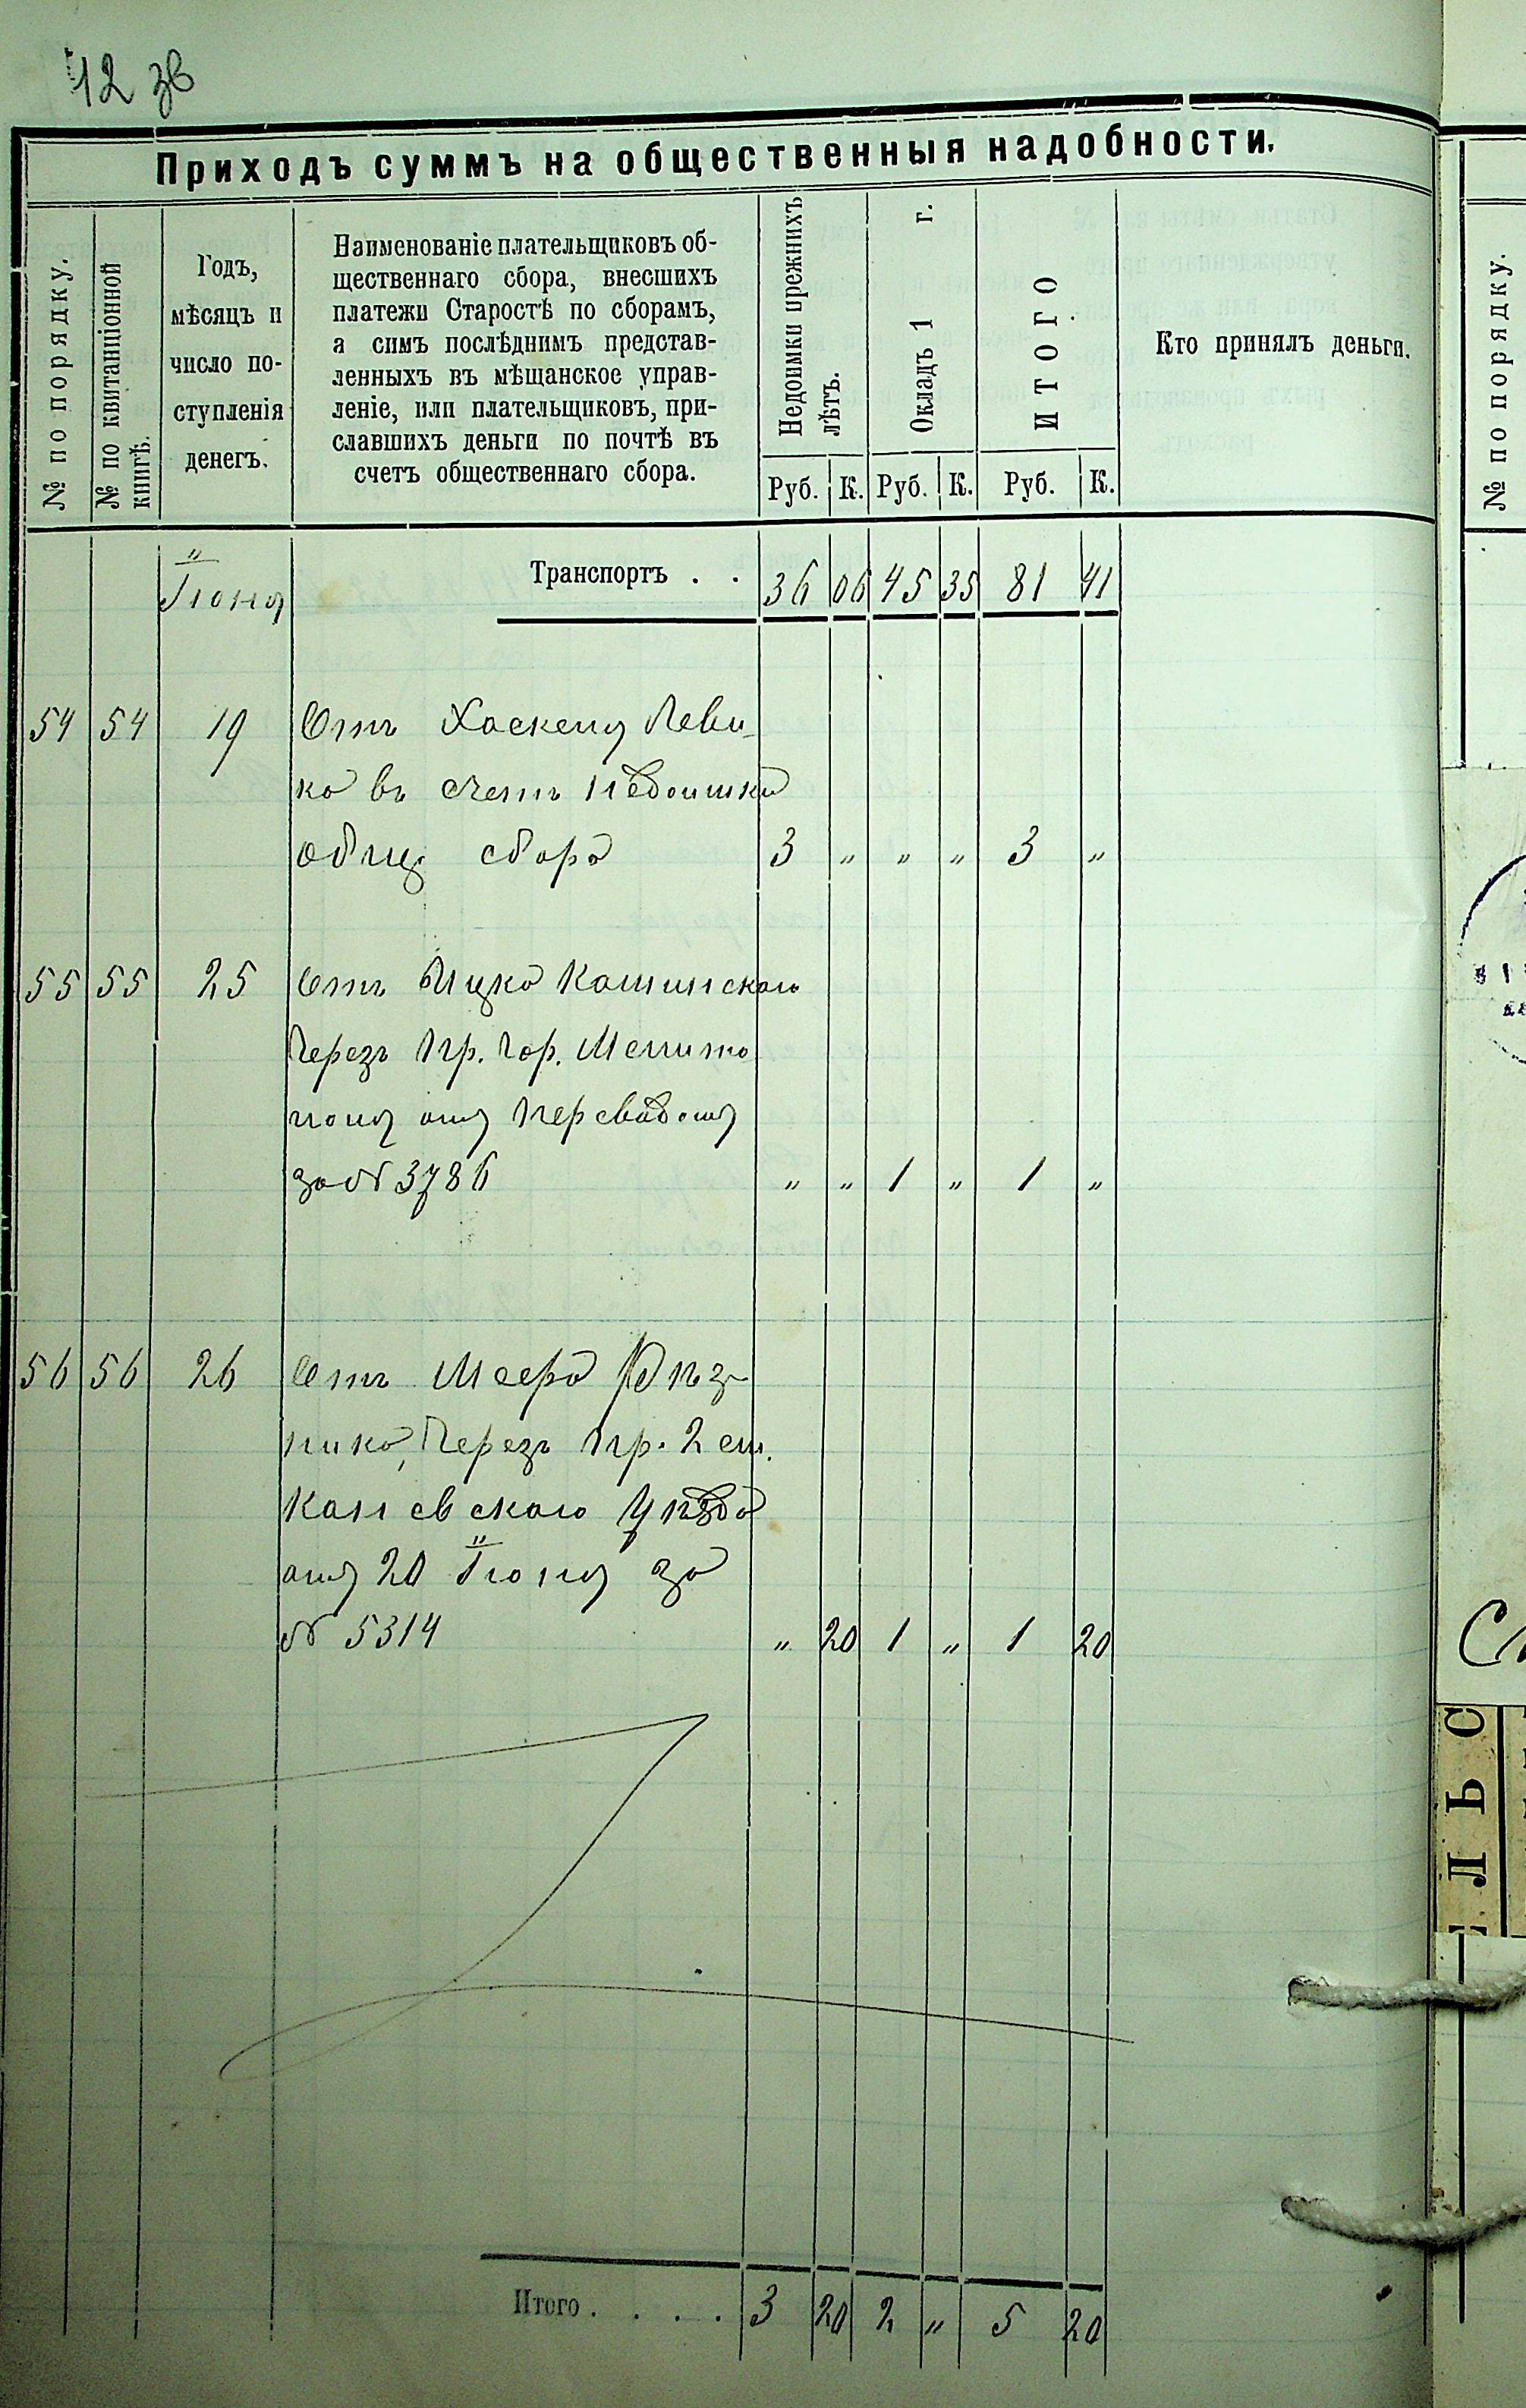 12 зв
Приходъ суммъ на общественныя надобности.
№ по порядку.
№ по квитанціонной книгѣ.
Годъ,
мѣсяцъ и
число по-
ступленія
денегъ.
Наименованіе плательщиковъ об-
щественнаго сбора, внесшихъ
платежи Старостѣ по сборамъ,
а симъ послѣднимъ представ-
ленныхъ въ мѣщанское управ-
леніе, или плательщиковъ, при-
славшихъ деньги по почтѣ въ
счетъ общественнаго сбора.
Недоимки прежнихъ лѣтъ.
Окладъ 1 г.
ИТОГО
Кто принялъ деньги.
Руб. К. Руб. К. Руб. К.
Іюня Транспортъ . . 36 06 45 35 81 41
54 54 19 Отъ Хаскеля Леви-
ка въ счетъ недоимки
общ. сбора 3 „ „ „ 3 „
55 55 25 Отъ Ицка Каминскаго
Через Пр. Гор.
за № 3786 „ „ 1 „ 1 „
56 56 26 Отъ Меера Рѣз-
ника, Через Пр. 2 ст.
Каневского Уѣзда
отъ 20 Іюня за
№ 5314 „ 20 1 „ 1 20
Итого . . . . 3 20 2 „ 5 20
№ по порядку.
ЛЬС